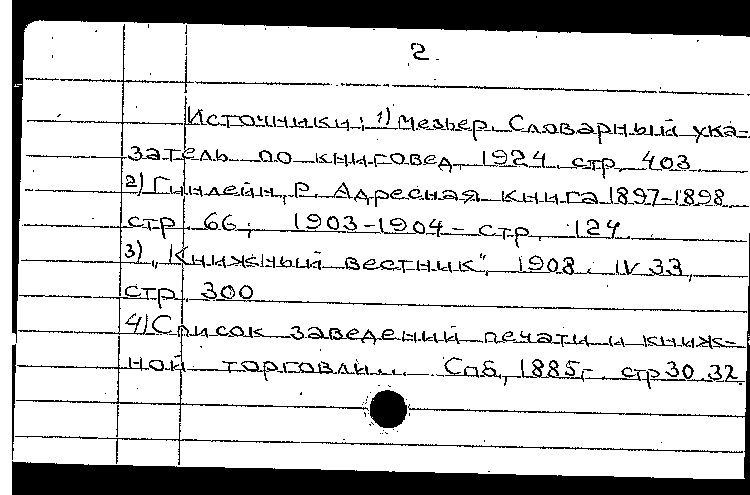 2.
Источники: 1) Мезьер. Словарный ука-
затель по книговед. 1924 стр. 403
2) Гинлейн, Р. Адресная книга 1897-1898
стр. 66; 1903-1904 - стр. 124.
3) „Книжный вестник", 1908. IV 33,
стр. 300
4) Список заведений печати и книж-
ной торговли... Спб, 1885г. стр 30.32.